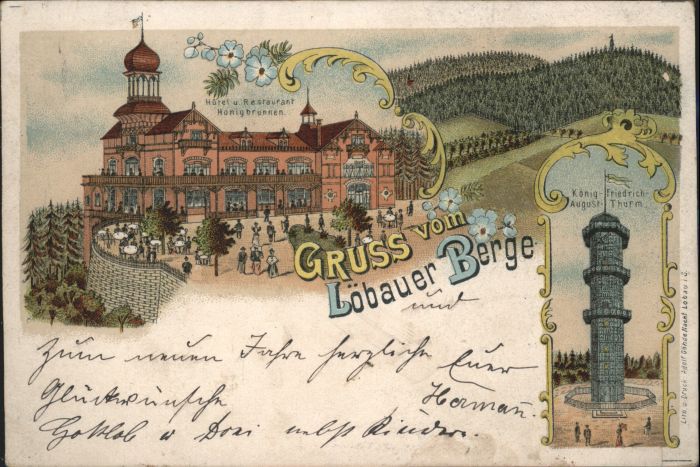 Hôtel u. Restaurant
Honigbrunnen.
König-Friedrich-
August-Thurm.
GRUSS vom
Löbauer Berge
und
Zum neuen Jahre herzliche Euer
Glückwünsche Herman.
Gottlob u nebst Kinder.
Lith. u. Druck Adolf Löbau i. S.